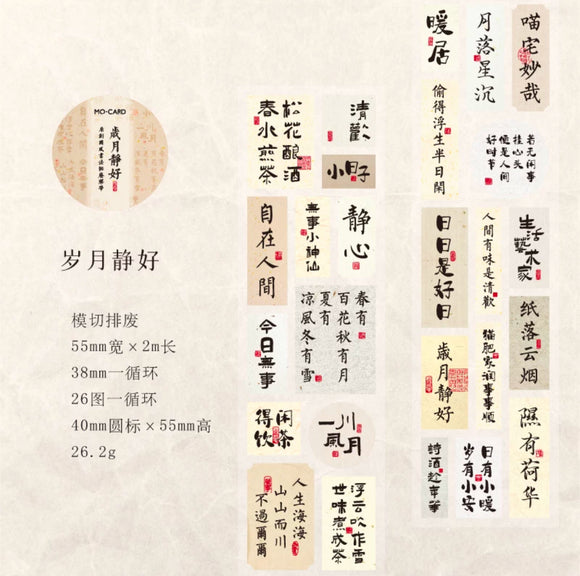 MO·CARD
歲月靜好
岁月静好
模切排废
55mm宽×2m长
38mm一循环
26图一循环
40mm圆标×55mm高
26.2g
松花酿酒
春水煎茶
清歡
小日子
自在人間
無事小神仙
静心
今日無事
春有
百花秋有月
夏有
凉風冬有雪
得闲
饮茶
一川
風月
人生海海
山山而川
不過爾爾
浮云吹作雪
世味煮成茶
暖居
月落星沉
喵宅妙哉
偷得浮生半日閑
若无闲事
挂心头
便是人间
好时节
日日是好日
人間有味是清歡
生活
藝术家
纸落云烟
歲月靜好
猫肥家润事事顺
隰有荷华
詩酒趁年華
日有小暖
岁有小安